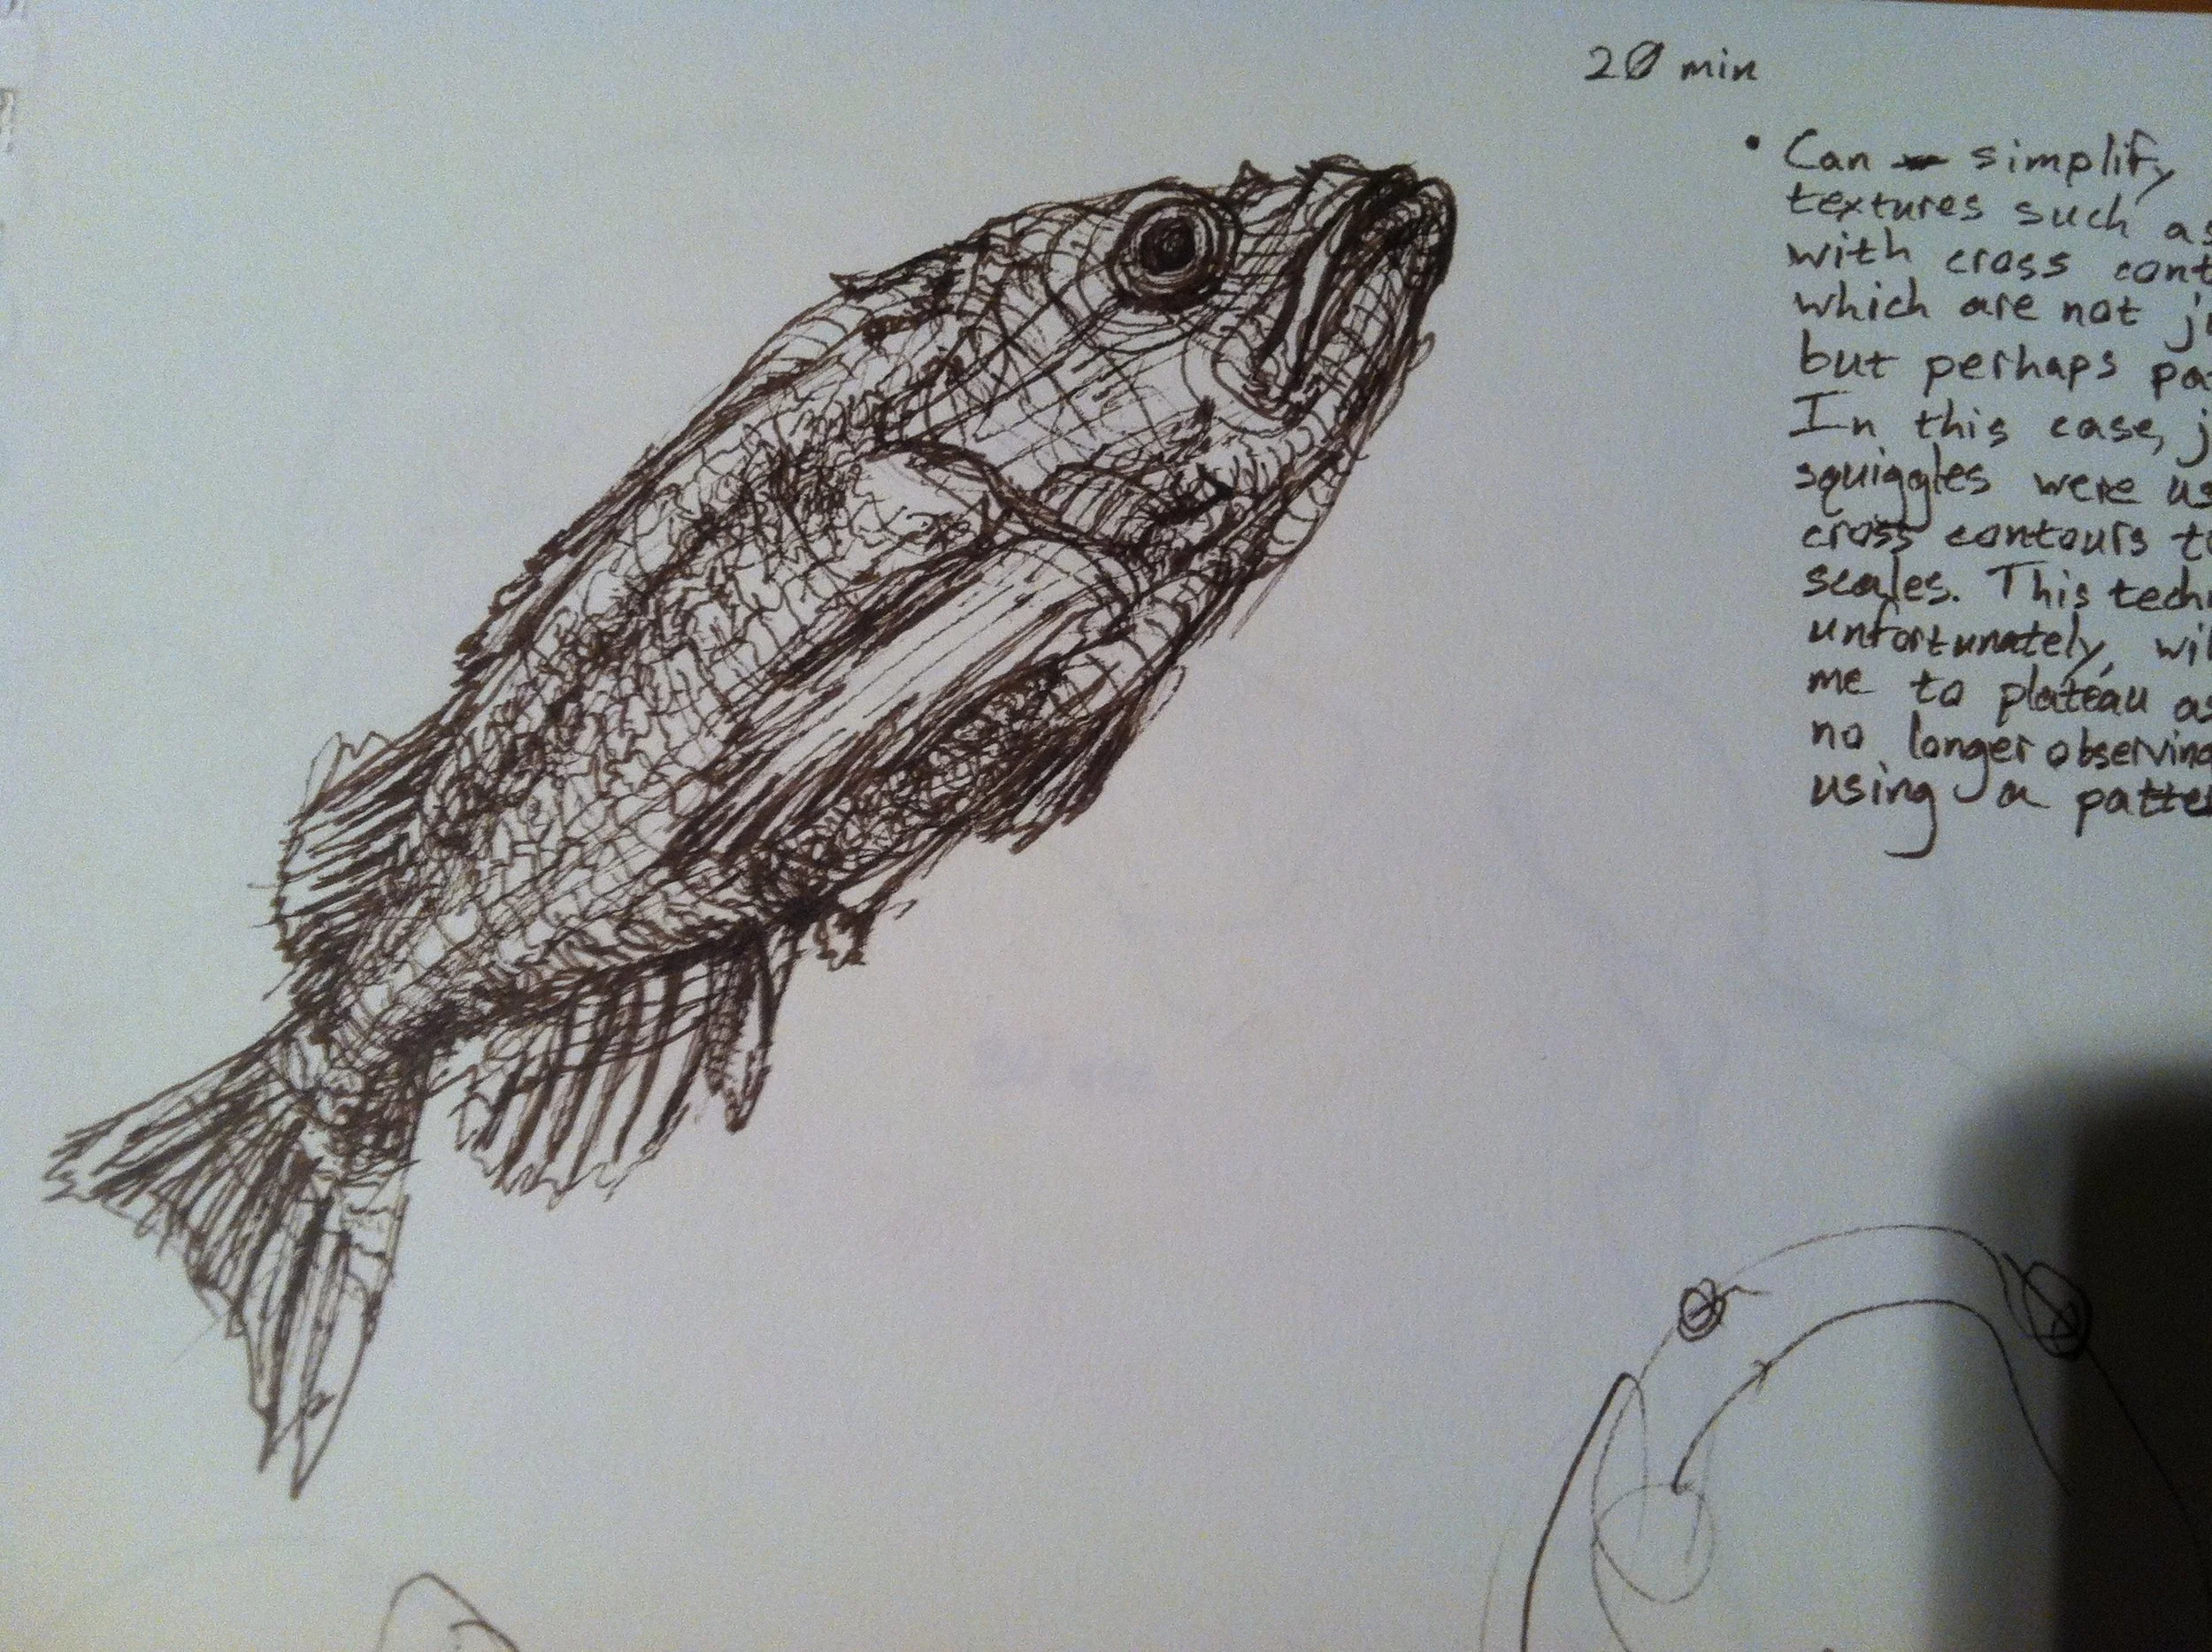 20 min
• Can simplify
textures such as
with cross
which are not
but perhaps
In this case,
squiggles were
cross contours
scales. This
unfortunately,
me to plateau
no longer observing
using a